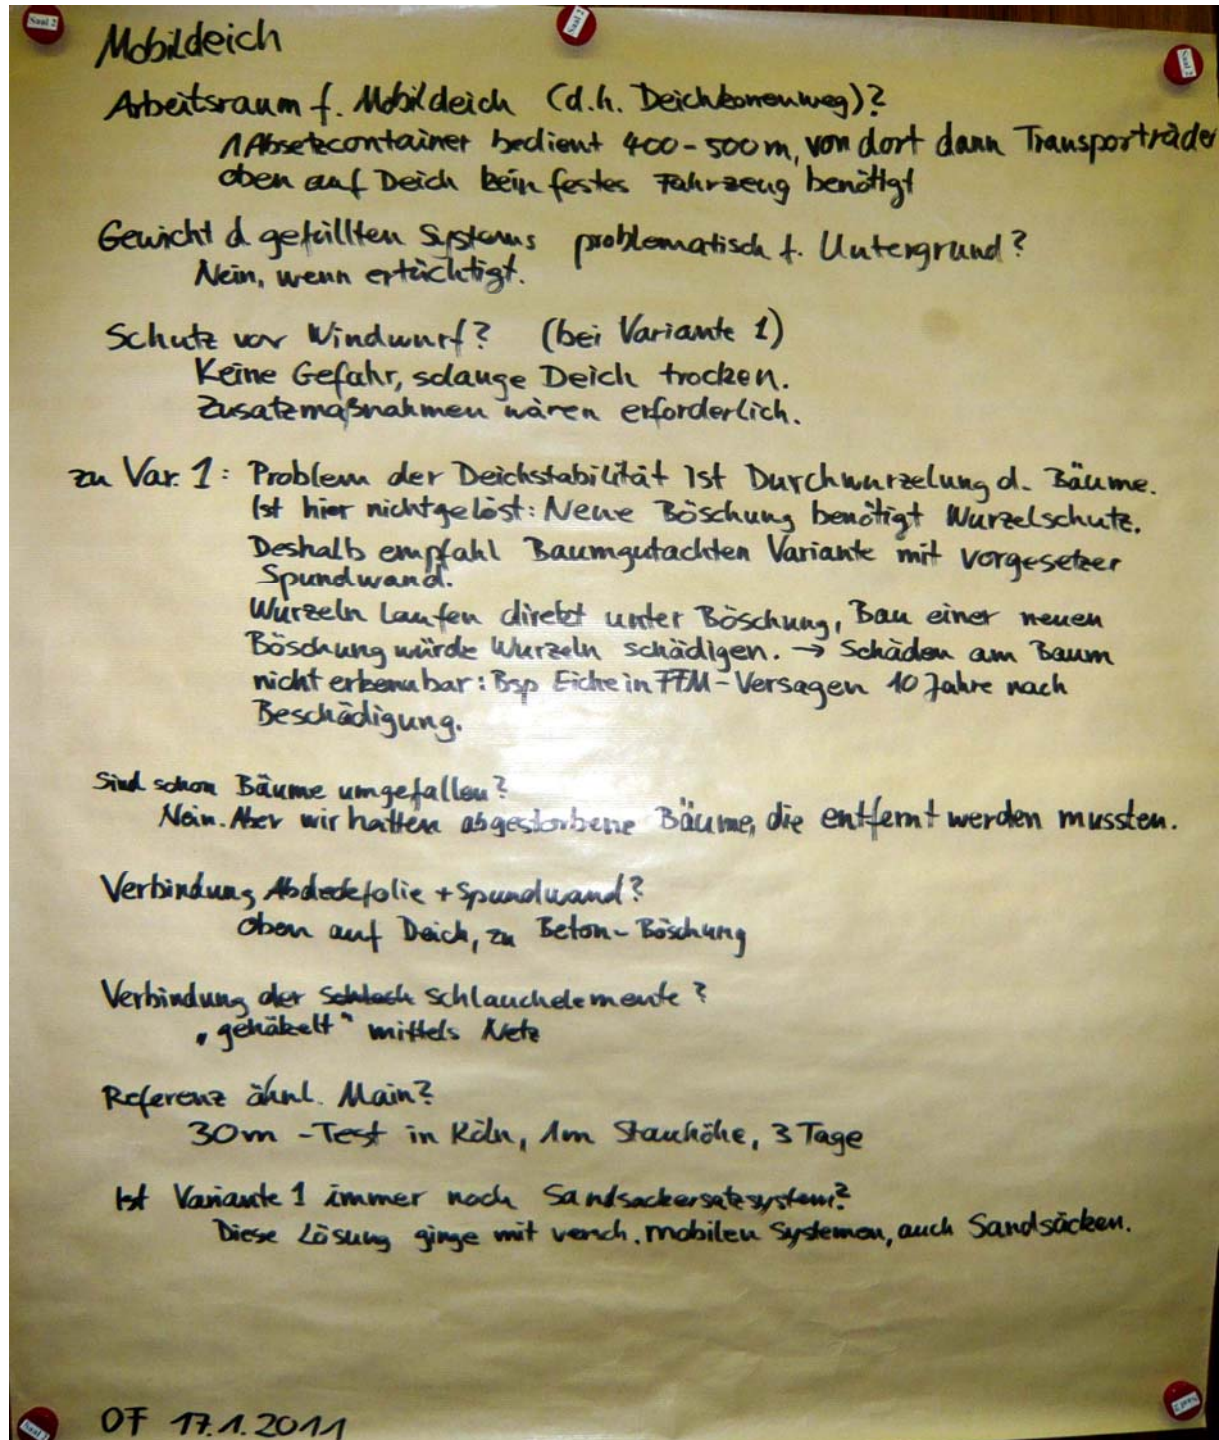 Saal 2
Saal 2
Saal 2
Mobildeich
Arbeitsraum f. Mobildeich (d.h. Deichkronenweg)?
1 Absetzcontainer bedient 400-500 m, von dort dann Transporträder
oben auf Deich kein festes Fahrzeug benötigt
Gewicht d gefüllten Systems problematisch f. Untergrund?
Nein, wenn ertüchtigt.
Schutz vor Windwurf? (bei Variante 1)
Keine Gefahr, solange Deich trocken.
Zusatzmaßnahmen wären erforderlich.
zu Var. 1: Problem der Deichstabilität ist Durchwurzelung d. Bäume.
Ist hier nicht gelöst: Neue Böschung benötigt Wurzelschutz.
Deshalb empfahl Baumgutachten Variante mit vorgesetzer
Spundwand.
Wurzeln laufen direkt unter Böschung, Bau einer neuen
Böschung würde Wurzeln schädigen. → Schäden am Baum
nicht erkennbar: Bsp Eiche in FFM - Versagen 10 Jahre nach
Beschädigung.
Sind schon Bäume umgefallen?
Nein. Aber wir hatten abgestorbene Bäume, die entfernt werden mussten.
Verbindung Abdeckfolie + Spundwand?
Oben auf Deich, zu Beton-Böschung
Verbindung der Schlauchelemente?
„gehäkelt“ mittels Netz
Referenz ähnl. Main?
30m -Test in Köln, 1m Stauhöhe, 3 Tage
Ist Variante 1 immer noch Sandsackersatzsystem?
Diese Lösung ginge mit versch. mobilen Systemen, auch Sandsäcken.
OF 17.1.2011
Saal 2
Saal 2